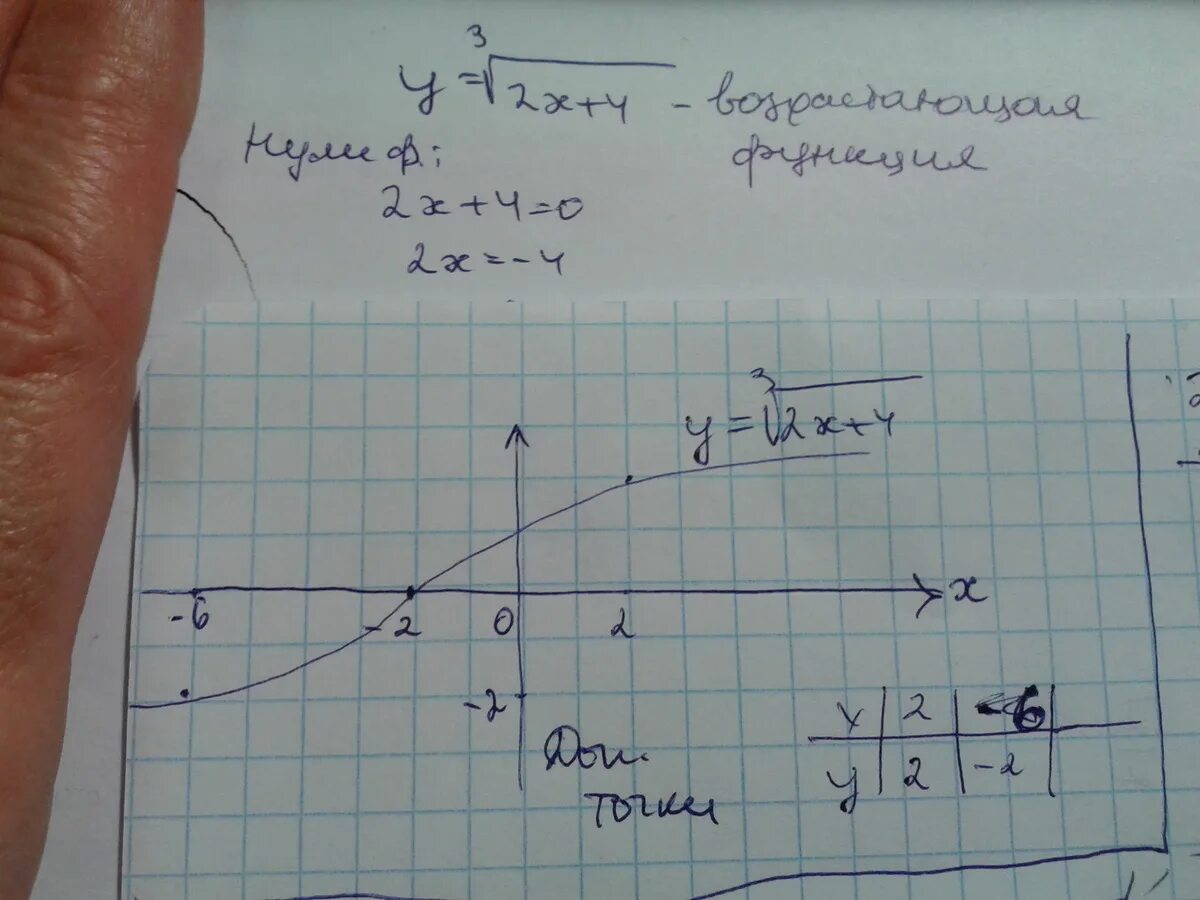 y = ∛(2x+4) - возрастающая
функция
Нули ф.:
2x+4=0
2x=-4
y = ∛(2x+4)
x
-6 -2 0 2
-2
Доп.
точки
x | 2 | -6 |
y | 2 | -2 |